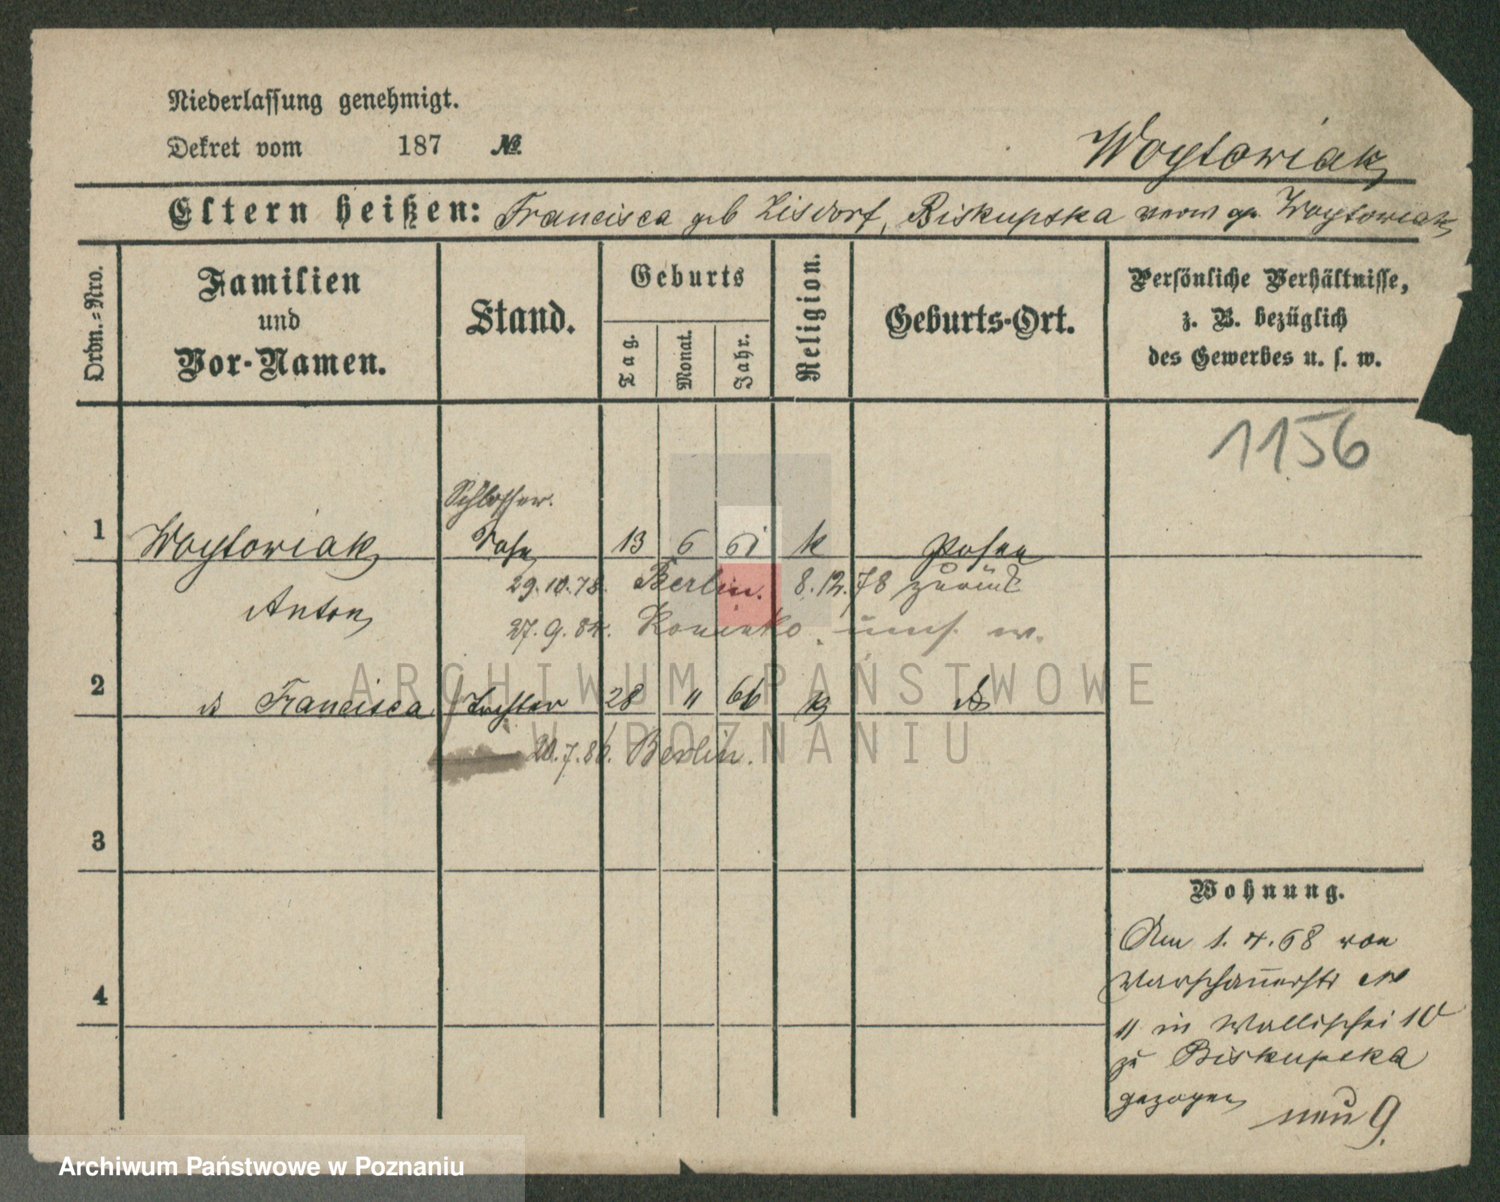 Niederlassung genehmigt.
Dekret vom 187 №
Woytowiak
Eltern heißen: Francisca geb Lisdorf, Biskupska verw gw. Woytowiak
Ordn.-Nro.
Familien
und
Vor-Namen.
Stand.
Geburts
Tag.
Monat.
Jahr.
Religion.
Geburts-Ort.
Persönliche Verhältnisse,
z. B. bezüglich
des Gewerbes u. s. w.
1156
Schlosser.
1 Woytowiak Sohn 13 6 61 k Posen
29.10.78. Berlin. 8.12.78 zurück
Anton
27.9.84.
2 Francisca Tochter 28 11 66 k
20.7.86. Berlin.
3
4
Wohnung.
Am 1.4.68 von
Warschauerstr №
11 in Wallischei 10
zu Biskupska
gezogen
neu 9.
ARCHIWUM PAŃSTWOWE
W POZNANIU
Archiwum Państwowe w Poznaniu